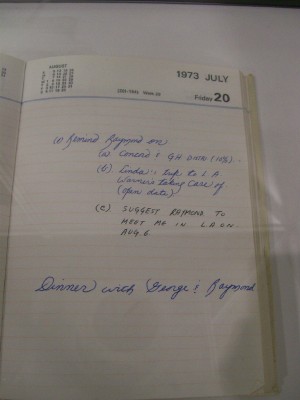 AUGUST
1973 JULY
Friday 20
(1) Remind Raymond on
(a) Concord & GH
(b). Linda's trip to L A
Warners taking care of
(open date)
(c) SUGGEST RAYMOND TO
MEET ME IN L A ON
AUG. 6
Dinner with George & Raymond